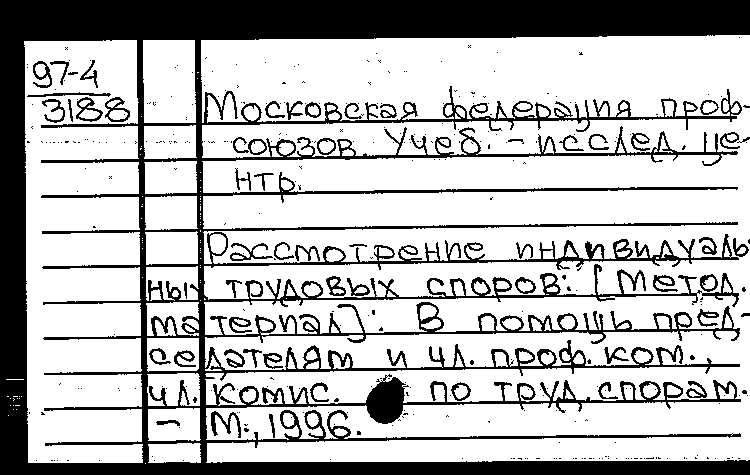 97-4
3188 Московская федерация проф-
союзов. Учеб. - исслед. це-
нтр.
Рассмотрение индивидуаль
ных трудовых споров: [Метод.
материал]: В помощь пред-
седателям и чл. проф. ком.,
чл. комис. по труд. спорам.
- М., 1996.